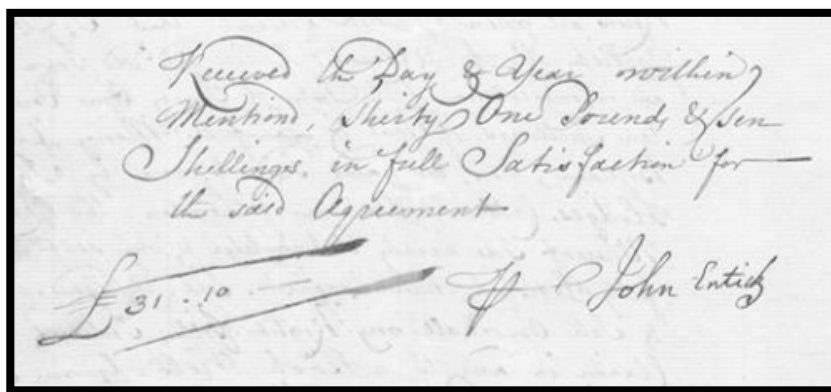 Received the Day & Year within
Mentiond, Thirty One Pound, & Ten
Shillings, in full Satisfaction for
the said Agreement
£ 31 - 10 John Entick